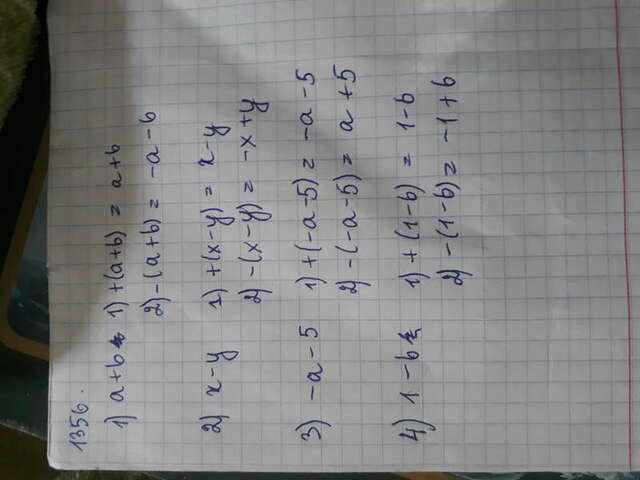 1356.
1) a+b 1) +(a+b) = a+b
2) -(a+b) = -a-b
2) x-y 1) +(x-y) = x-y
2) -(x-y) = -x+y
3) -a-5 1) +(-a-5) = -a-5
2) -(-a-5) = a+5
4) 1-b 1) +(1-b) = 1-b
2) -(1-b) = -1+b